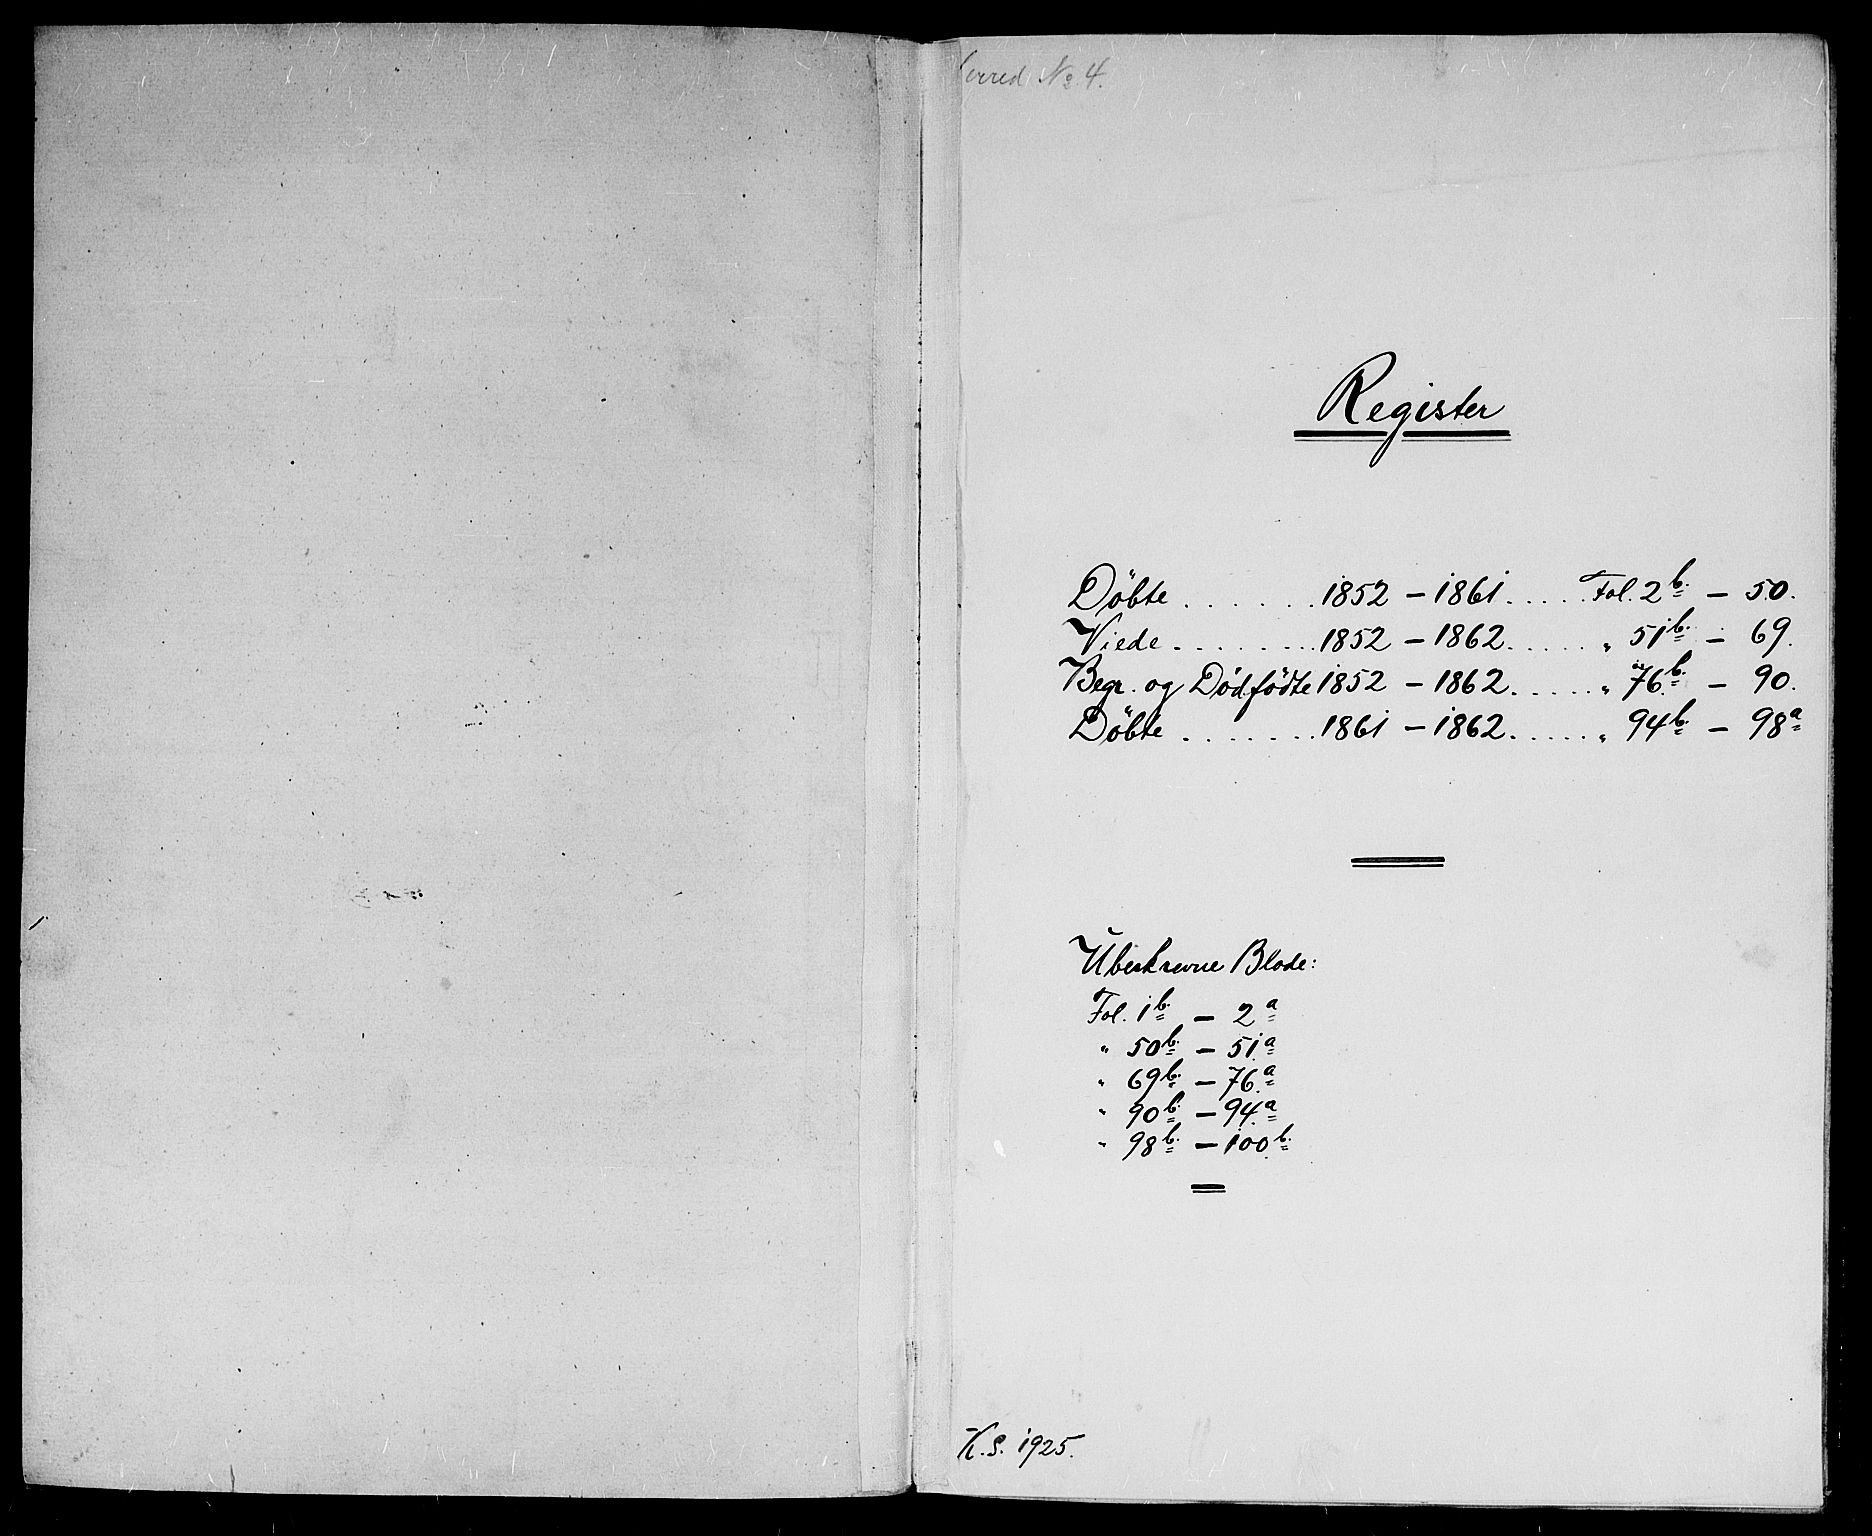 erred No 4.
Register
Döbte . . . . . . . 1852 – 1861 . . . . . Fol. 2b. – 50.
Viede . . . . . . . . 1852 – 1862 . . . . . " 51b. – 69.
Begr. og Dödfödte 1852 – 1862 . . . . . " 76b. – 90.
Döbte . . . . . . . 1861 – 1862 . . . . . " 94b. – 98a
Ubeskrevne Blade:
Fol. 1b. – 2a
" 50b. – 51a
" 69b. – 76a
" 90b. – 94a
" 98b. – 100b.
K.S. 1925.